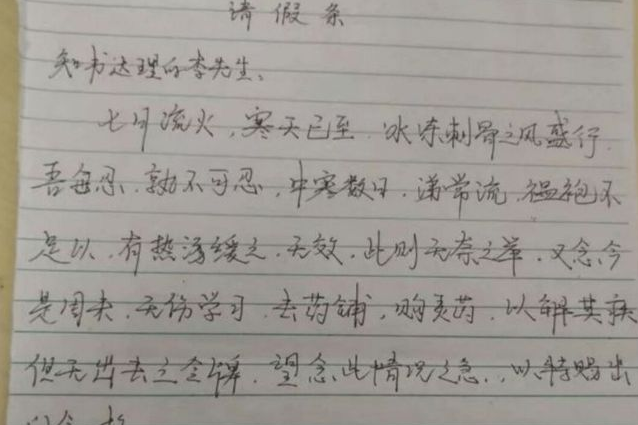 请假条
知书达理的李先生、
七月流火，寒天已至．冰冻刺骨之风盛行．
吾每忍．孰不可忍，中寒数日．涕常流．褞袍不
足以．有热汤缓之．无效．此则无奈之举．又念今
是周末．无伤学习．去药铺，购灵药．以解其疾
但无出去之令牌．望念此情况之急．．以特赐出